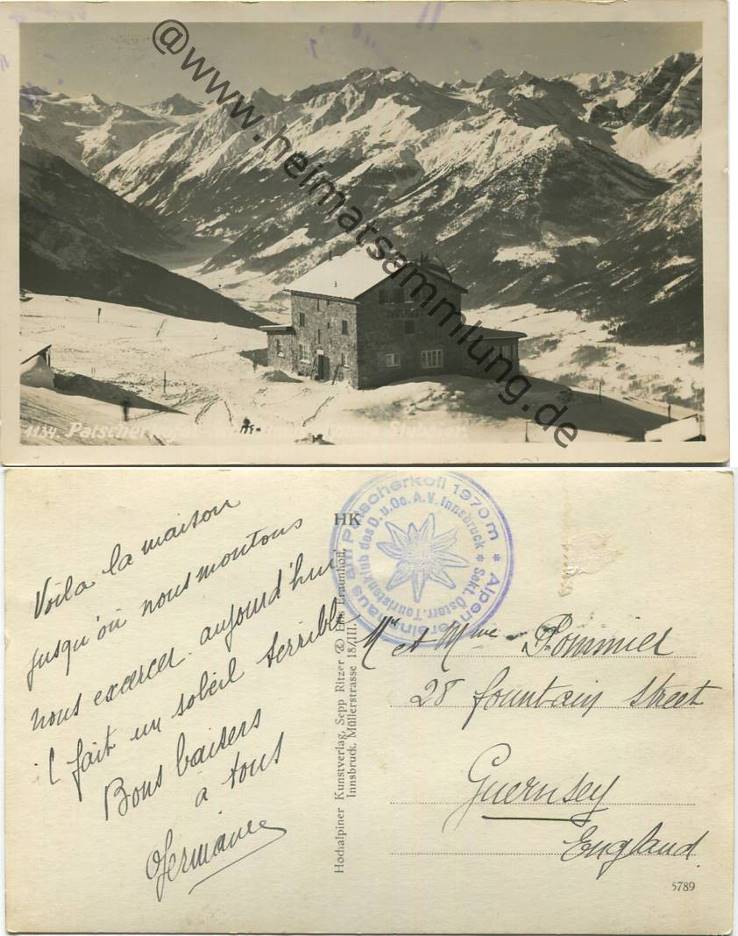 @www.heimatsammlung.de
1134. Patscherkofel
Voila la maison
jusqu'où nous montons
nous exercer aujourd'hui
il fait un soleil terrible
Bons baisers
à tous
Germaine
HK
Hochalpiner Kunstverlag, Sepp Ritzer & Fraunhoff,
Innsbruck, Müllerstrasse 18/III
Alpenvereinshaus am Patscherkofl 1970 m
Sekt. Österr. Touristenklub des D. u. Oe. A. V. Innsbruck
Mr et Mme Pommier
28 fountain Street
Guernsey
England.
5789